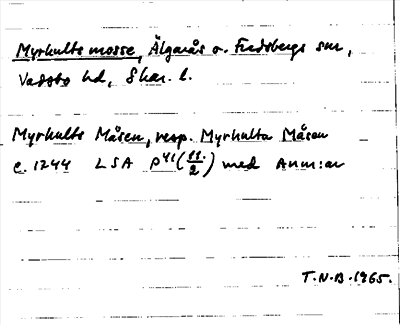 Myrhults mosse, Älgarås o. Fredsbergs snr,
Vadsbo hd, Skar. l.
Myrhults Måsen, resp. Myrhulta Måsen
c. 1744 LSA P41(11/2) med Anm:ar
T.N.B. 1965.